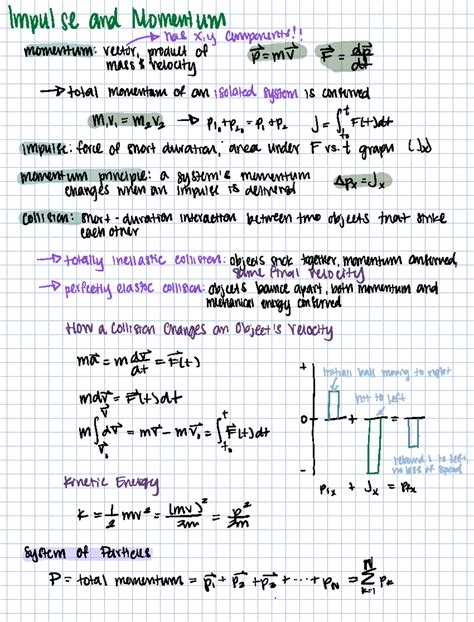 Impulse and Momentum
→ has x,y components!!
momentum: vector, product of mass & velocity
p⃗ = mv⃗   F⃗ = dp⃗/dt
→ total momentum of an isolated system is conserved
m₁v₁ = m₂v₂ → p₁₀ + p₂₀ = p₁ + p₂   J = ∫ₜ₀ᵗ F(t)dt
impulse: force of short duration; area under F vs. t graph (Jx)
momentum principle: a system's momentum
changes when an impulse is delivered   Δpx = Jx
collision: short-duration interaction between two objects that strike
each other
→ totally inelastic collision: objects stick together, momentum conserved,
same final velocity
→ perfectly elastic collision: objects bounce apart, both momentum and
mechanical energy conserved
How a Collision Changes an Object's Velocity
ma⃗ = m dv⃗/dt = F⃗(t)
mdv⃗ = F⃗(t)dt
m∫dv⃗ = mv⃗ - mv⃗₀ = ∫ₜ₀ᵗ F⃗(t)dt
+
initial: ball moving to right
hit to left
0 + =
-
rebounds to left,
no loss of speed
pix + Jx = pfx
Kinetic Energy
K = 1/2 mv² = (mv)²/2m = p²/2m
System of Particles
P = total momentum = p⃗₁ + p⃗₂ + p⃗₃ + ... + pN = Σ(k=1 to N) pk